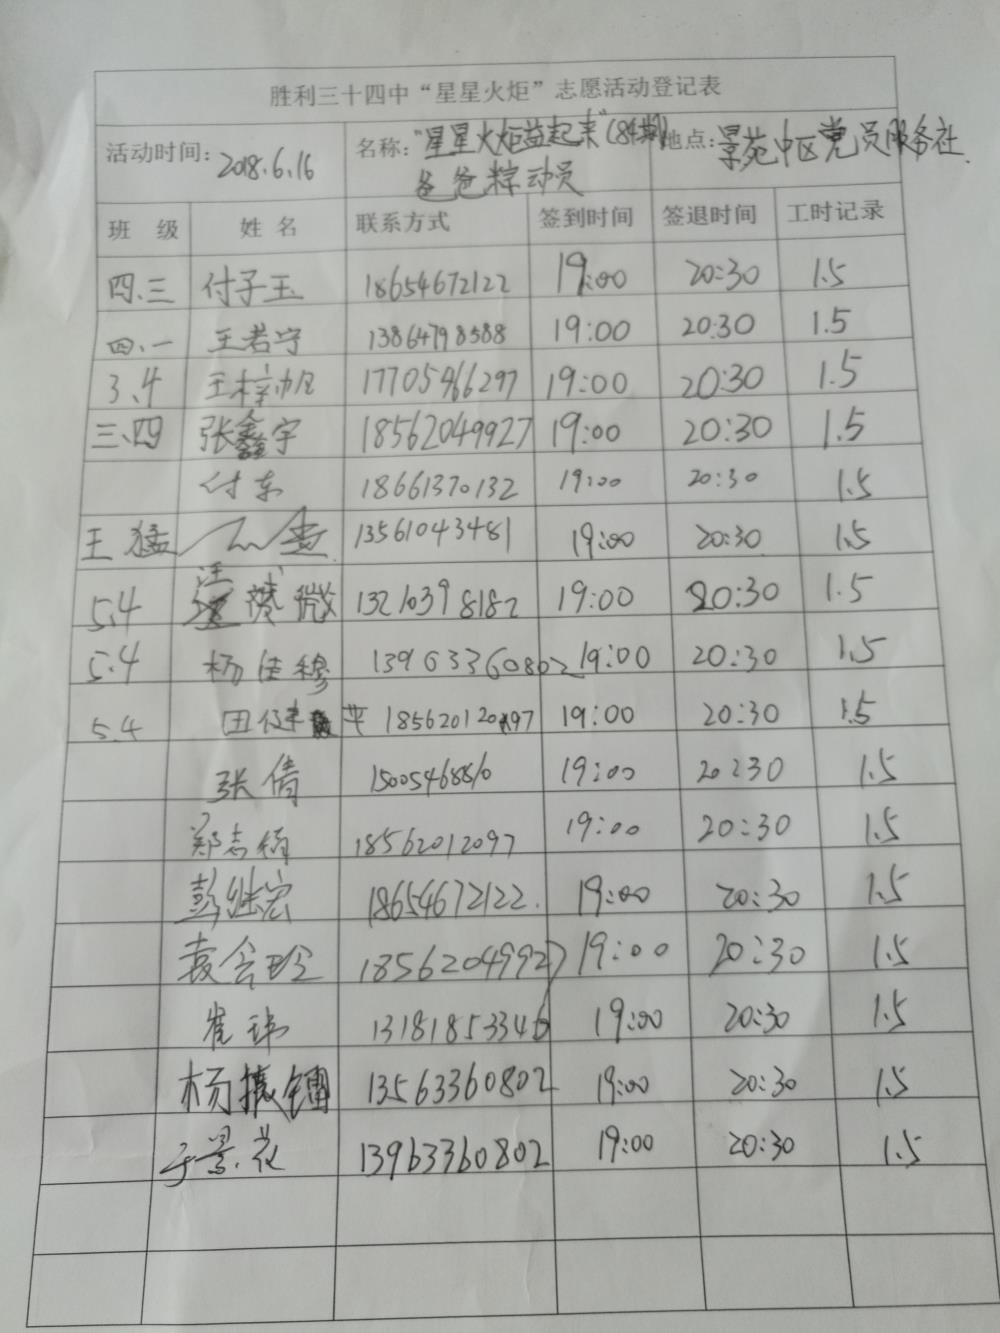 胜利三十四中“星星火炬”志愿活动登记表
活动时间：2018.6.16 名称：“星星火炬益起来”(84期) 地点：景苑中区党员服务社
爸爸粽动员
班 级 姓名 联系方式 签到时间 签退时间 工时记录
四、三 付子玉 18654672122 19:00 20:30 1.5
四、一 王若宁 13864798588 19:00 20:30 1.5
3.4 王梓帆 17705466297 19:00 20:30 1.5
三、四 张鑫宇 18562049927 19:00 20:30 1.5
付东 18661370132 19:00 20:30 1.5
王猛 13561043481 19:00 20:30 1.5
5.4 汪赟微 13210398182 19:00 20:30 1.5
5.4 杨佳穆 13963360802 19:00 20:30 1.5
5.4 田健平 18562012097 19:00 20:30 1.5
张倩 15005468810 19:00 20:30 1.5
郑志梅 18562012097 19:00 20:30 1.5
彭继宏 18654672122. 19:00 20:30 1.5
袁会珍 18562049927 19:00 20:30 1.5
崔玮 13181853346 19:00 20:30 1.5
杨振 13563360802 19:00 20:30 1.5
于景花 13963360802 19:00 20:30 1.5